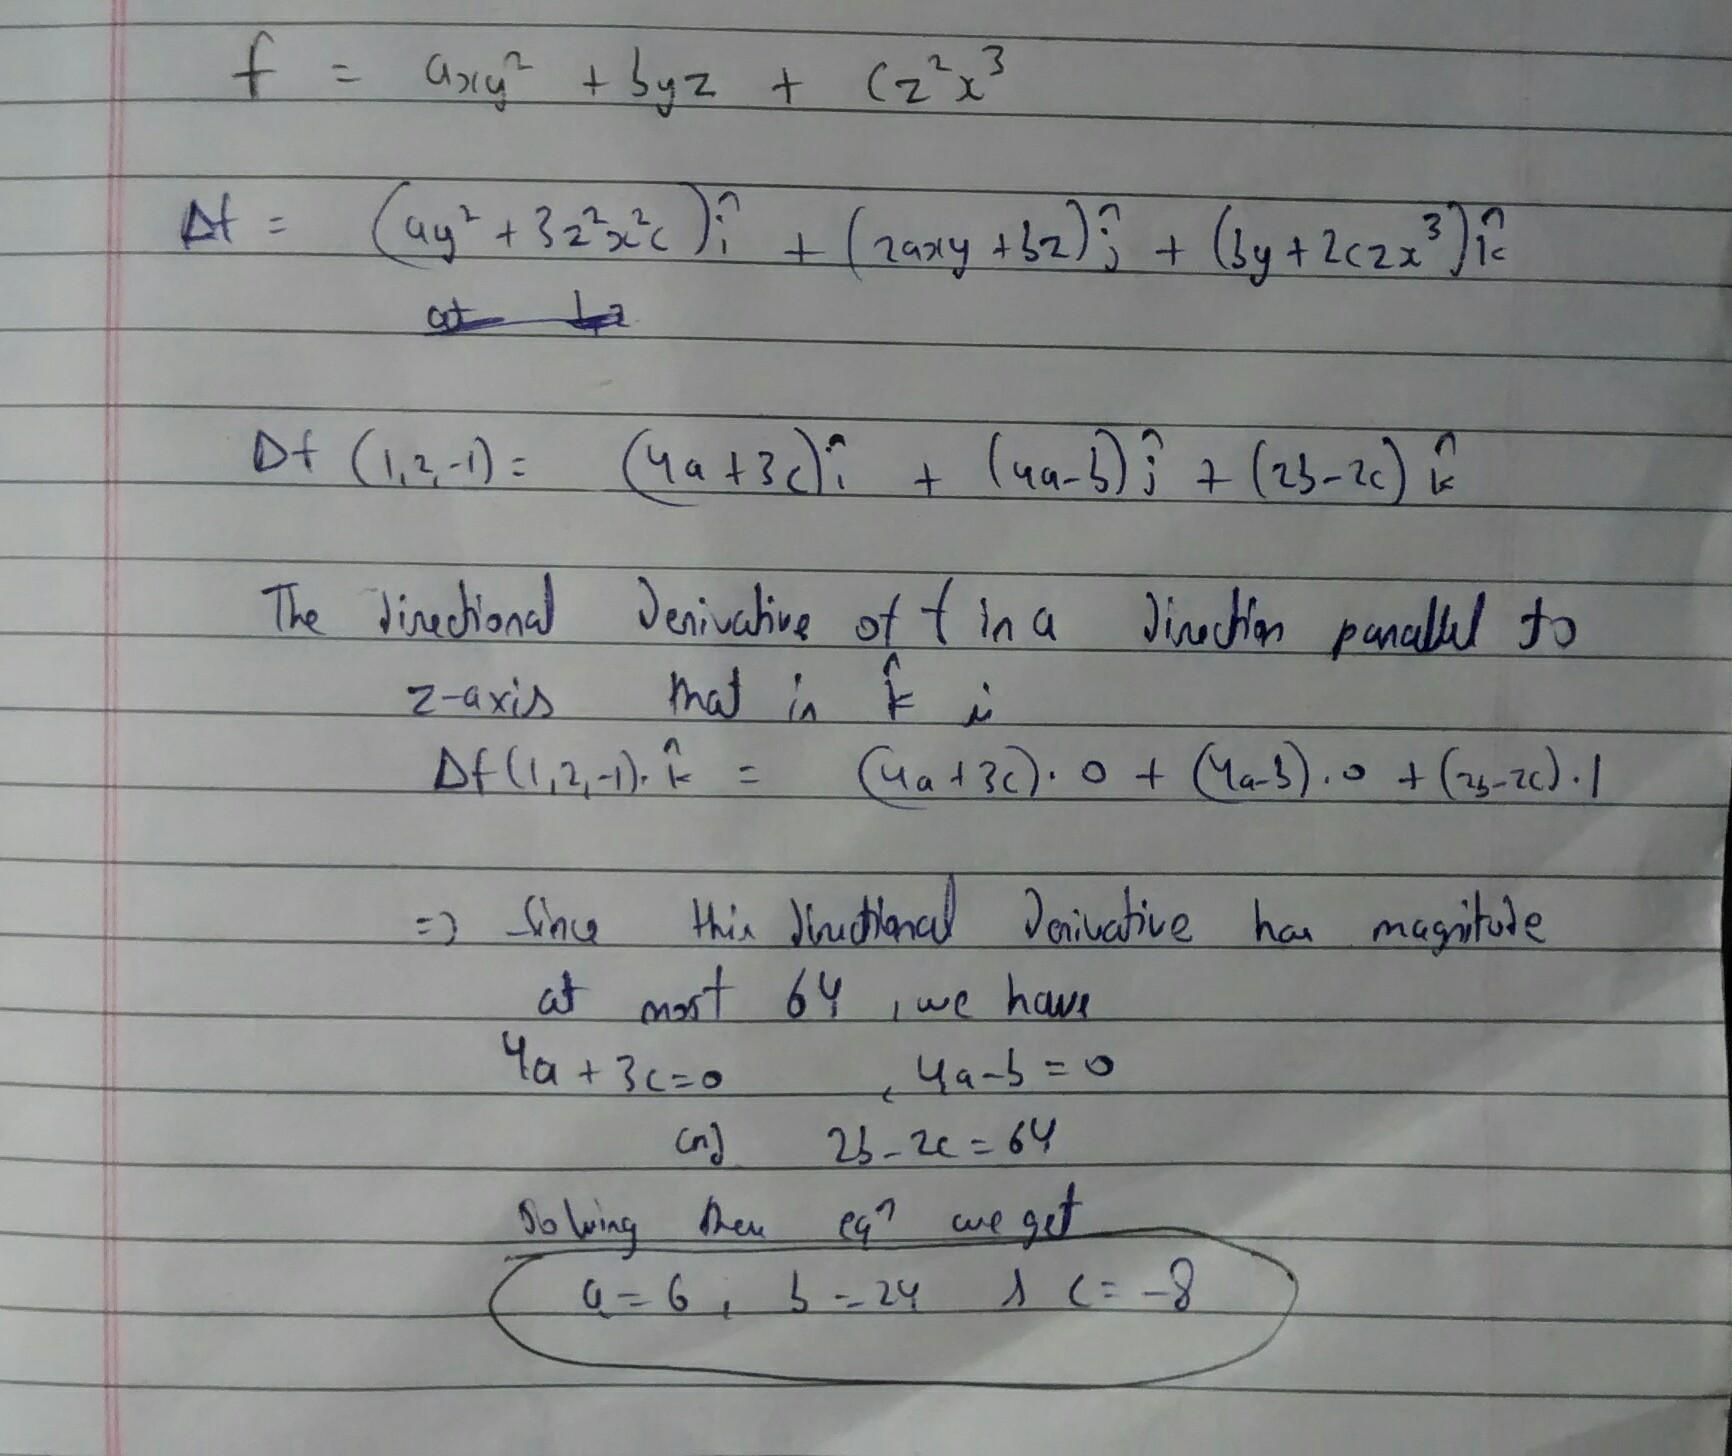 f = axy² + byz + cz²x³
Δf = (ay² + 3z²x²c)î + (2axy + bz)ĵ + (by + 2czx³)k̂
Δf (1,2,-1) = (4a + 3c)î + (4a-b)ĵ + (2b-2c) k̂
The directional derivative of f in a direction parallel to
z-axis that in k̂ is
Δf(1,2,-1). k̂ = (4a+3c). 0 + (4a-b). 0 + (2b-2c).1
=> Since this directional derivative has magnitude
at most 64 , we have
4a + 3c=0 , 4a-b = 0
and 2b-2c=64
Solving then eqn we get
a = 6 , b = 24 & c = -8